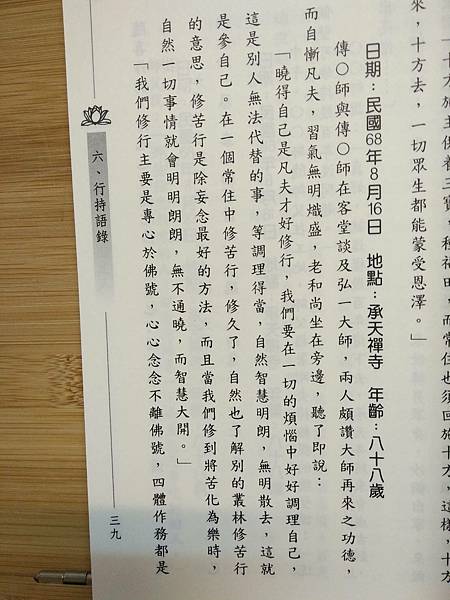 十方施主供養三寶，種福田，而常住也須回施十方，這樣，十方
來，十方去，一切眾生都能蒙受恩澤。」
日期：民國68年8月16日　地點：承天禪寺　年齡：八十八歲
傳○師與傳○師在客堂談及弘一大師，兩人頗讚大師再來之功德，
而自慚凡夫，習氣無明熾盛，老和尚坐在旁邊，聽了即說：
「曉得自己是凡夫才好修行，我們要在一切的煩惱中好好調理自己，
這是別人無法代替的事，等調理得當，自然智慧明朗，無明散去，這就
是參自己。在一個常住中修苦行，修久了，自然也了解別的叢林修苦行
的意思，修苦行是除妄念最好的方法，而且當我們修到將苦化為樂時，
自然一切事情就會明明朗朗，無不通曉，而智慧大開。」
「我們修行主要是專心於佛號，心心念念不離佛號，四體作務都是
六、行持語錄
三九